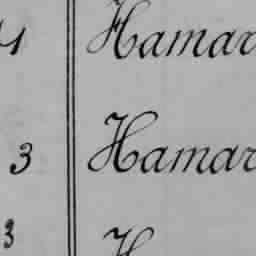 4 Hamar
3 Hamar
3 H